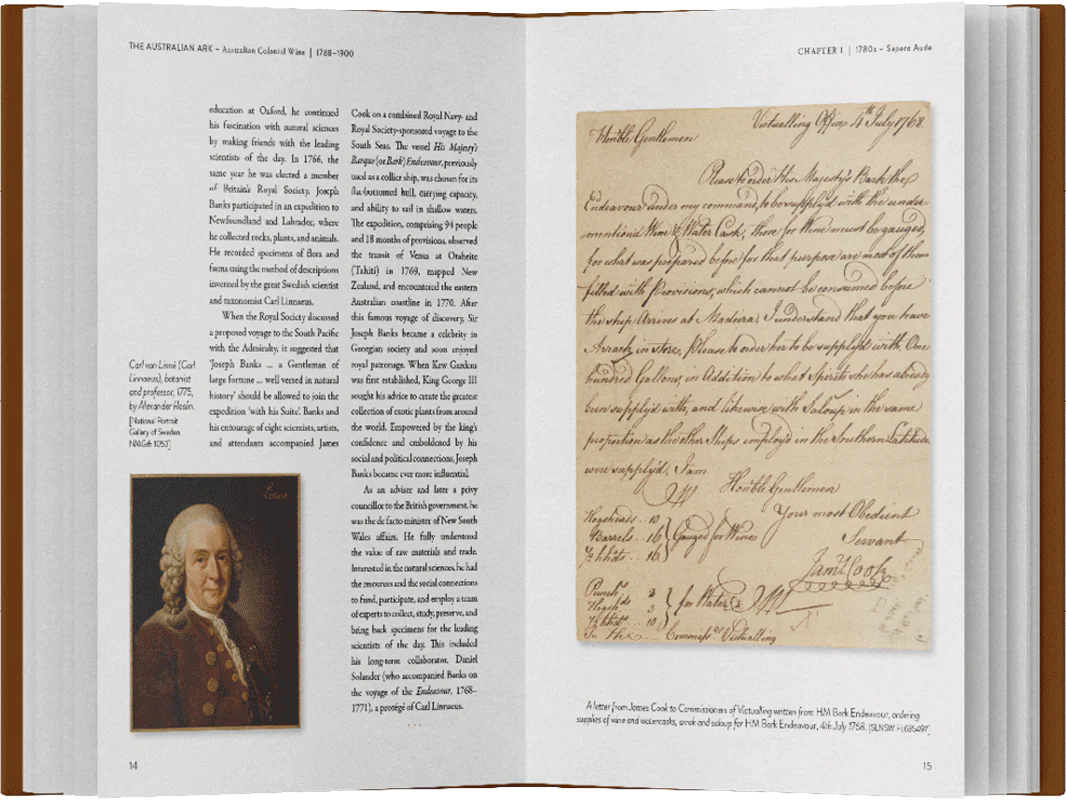 THE AUSTRALIAN ARK – Australian Colonial Wine | 1788–1900
education at Oxford, he continued
his fascination with natural sciences
by making friends with the leading
scientists of the day. In 1766, the
same year he was elected a member
of Britain's Royal Society, Joseph
Banks participated in an expedition to
Newfoundland and Labrador, where
he collected rocks, plants, and animals.
He recorded specimens of flora and
fauna using the method of descriptions
invented by the great Swedish scientist
and taxonomist Carl Linnaeus.
When the Royal Society discussed
a proposed voyage to the South Pacific
with the Admiralty, it suggested that
'Joseph Banks ... a Gentleman of
large fortune ... well versed in natural
history' should be allowed to join the
expedition 'with his Suite'. Banks and
his entourage of eight scientists, artists,
and attendants accompanied James
Carl von Linné (Carl
Linnaeus), botanist
and professor, 1775,
by Alexander Roslin.
[National Portrait
Gallery of Sweden
NMGrh 1053]
Cook on a combined Royal Navy- and
Royal Society-sponsored voyage to the
South Seas. The vessel His Majesty's
Barque (or Bark) Endeavour, previously
used as a collier ship, was chosen for its
flat-bottomed hull, carrying capacity,
and ability to sail in shallow waters.
The expedition, comprising 94 people
and 18 months of provisions, observed
the transit of Venus at Otaheite
(Tahiti) in 1769, mapped New
Zealand, and encountered the eastern
Australian coastline in 1770. After
this famous voyage of discovery, Sir
Joseph Banks became a celebrity in
Georgian society and soon enjoyed
royal patronage. When Kew Gardens
was first established, King George III
sought his advice to create the greatest
collection of exotic plants from around
the world. Empowered by the king's
confidence and emboldened by his
social and political connections, Joseph
Banks became ever more influential.
As an adviser and later a privy
councillor to the British government, he
was the de facto minister of New South
Wales affairs. He fully understood
the value of raw materials and trade.
Interested in the natural sciences, he had
the resources and the social connections
to fund, participate, and employ a team
of experts to collect, study, preserve, and
bring back specimens for the leading
scientists of the day. This included
his long-term collaborator, Daniel
Solander (who accompanied Banks on
the voyage of the Endeavour, 1768–
1771), a protégé of Carl Linnaeus.
...
14
CHAPTER 1 | 1780s – Sapere Aude
Victualling Office 4th July 1768
Honble Gentlemen
Please to order His Majesty's Bark the
Endeavour under my command, to be supply'd with the under-
mentiond Wine & Water Cask, those for Wine must be gauged,
for what was prepared before for that purpose are most of them
filled with Provisions, which cannot be consumed before
the ship Arrives at Madeira, I understand that you have
Arrack in store, Please to order her to be supply'd with One
hundred Gallons, in Addition to what Spirits she has already
been supply'd with, and likewise with Saloup in the same
proportion as the other Ships employ'd in the Southern Latitudes
were supply'd. I am
Honble Gentlemen
Your most Obedient
Servant
Jams Cook
Hogsheads .. 10
Barrels .. 16
½ hhds .. 16
Gauged for Wine
Punchs 3
Hogshds 3
½ hhds 10
for Water
To the Commissrs Victualling
A letter from James Cook to Commissioners of Victualling written from H.M Bark Endeavour, ordering
supplies of wine and watercasks, arrak and saloup for H.M Bark Endeavour, 4th July 1768. [SLNSW FL685497]
15